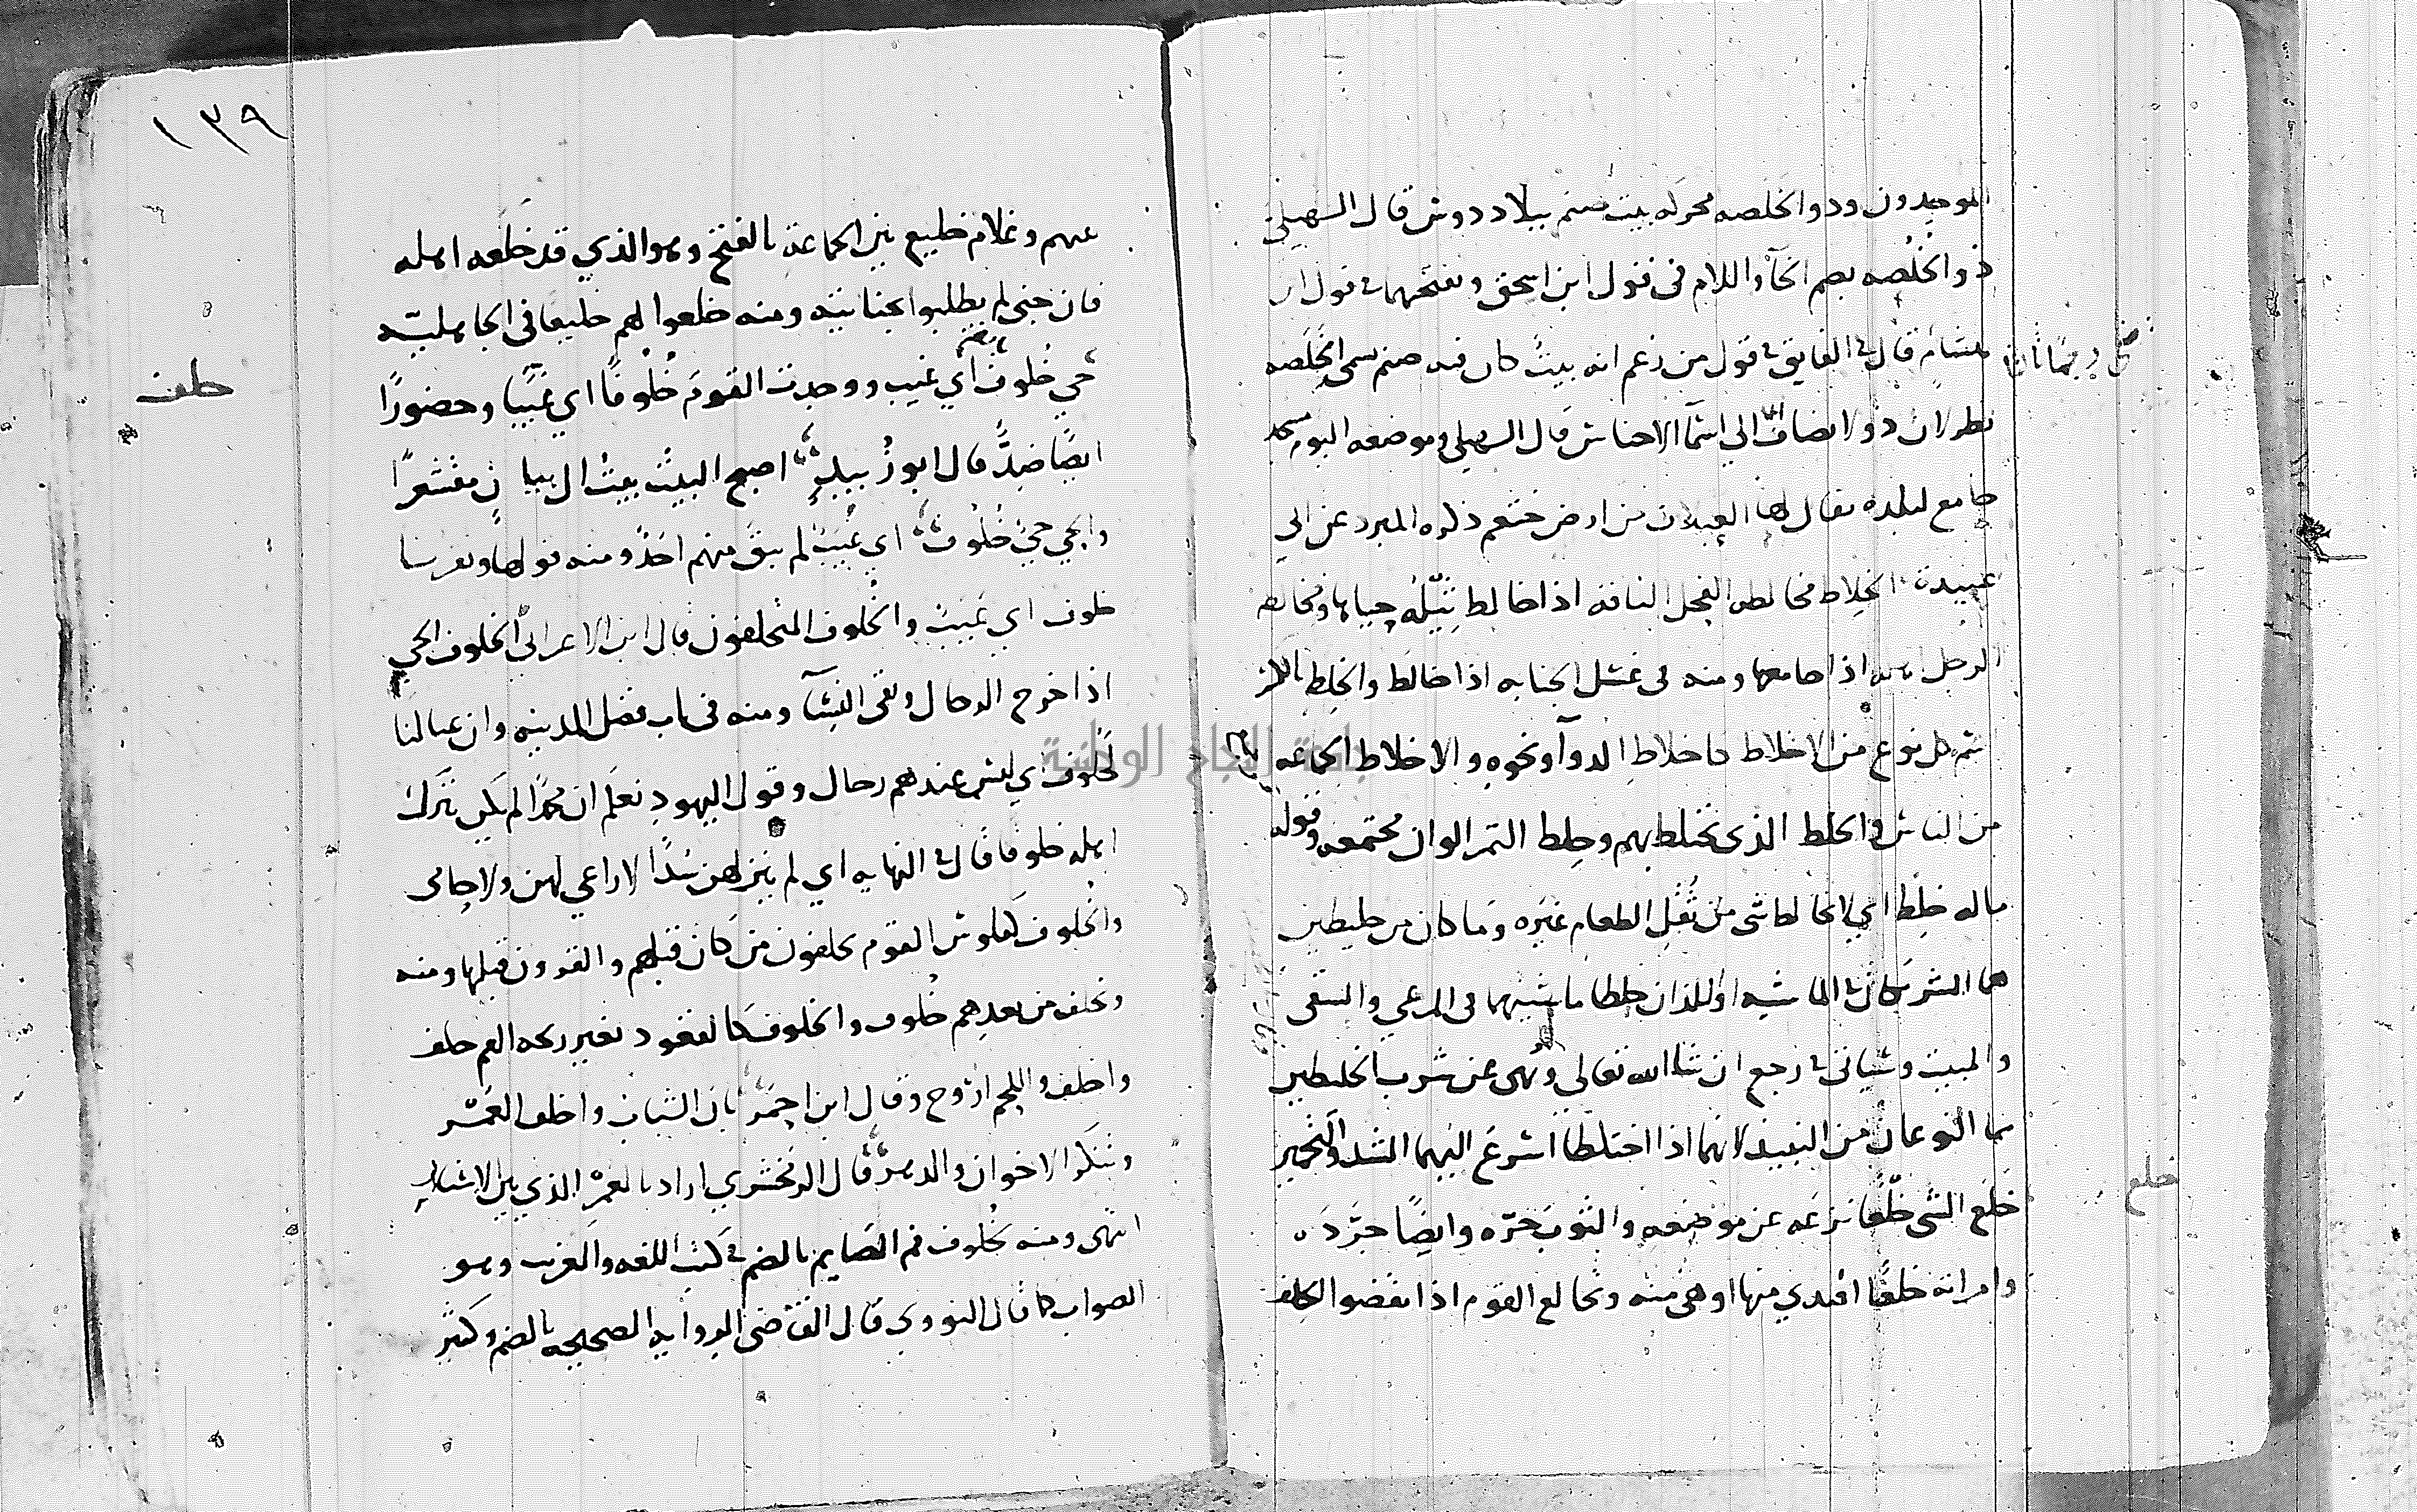 الموحدون وذو الخلصه محركه بيت صنم ببلاد دوس قال السهيلي
ذو الخُلُصه بضم الخآ واللام في قول ابن اسحق وبفتحهما في قول ابن
هشام قال في الفايق في قول من زعم انه بيتٌ كان فيه صنم يسمى الخلَصه
نظر لان ذو لا يضاف الا الي اسمآ الاجناس قال السهيلي وموضعه اليوم مسجد
جامع لبلده يقال لها العبلات من ارض خثعم ذكره المبرد عن ابي
عبيدة الخِلاط مخالطه الفحل الناقه اذا خالط ثيله حياها وخالط
الرجل اهله اذا جامعها ومنه في غسل الجنابه اذا خالط والخِلط بالكسر
كل نوع من الاخلاط كاخلاطِ الدوآ ونحوه والاخلاط الجماعه
من الناس والخلط الذي يختلط بهم وخِلط التمر الوان مجتمعه وقوله
ماله خِلط اي لا يخالطه شي من ثُفْلِ الطعام غيره وما كان من خليطين
هما الشريكان في الماشيه او اللذان خلطا ماشيتهما في المرعي والسقي
والمبيت وسياتي في رجع ان شا الله تعالي ونُهى عن شرب الخليطين
هما النوعان من النبيذ لانهما اذا اختلطا اسرع اليهما الشده والتخمير
خَلَع الشي خلْعًا نزعَه عن موضعه والثوبَ جرّه وايضًا جرَّدَه
وامراته خلعًا افتدي منها او هي منه وتخالع القوم اذا نقضوا الحلف
خلع
١٣٩
عنهم وغلام خليع بين الخلاعة بالفتح وهو الذي قد خَلَعه اهله
فان جني لم يطلبوا بجنايته ومنه خلعوا لهم خليعًا في الجاهليّه
حَيٌّ خُلُوف اي غيب ووجدت القومَ خُلُوفًا اي غُيَّبًا وحضورًا
ايضًا ضِدٌّ قال ابو زُبيدٍ اصبح البيْتُ بيْتُ ال بيانٍ مقشعرًا
والحي حيٌّ خُلُوفُ اي غُيَّبٌ لم يبقَ منهم احدٌ ومنه قولها ونفرنا
خلوف اي غُيَّبٌ والخُلوف المتخلفون قال ابن الاعرابي الخلوف الحي
اذا خرج الرجال وبقي النسآ ومنه في باب فضل المدينه وان عيالنا
لخُلوف اي ليس عندهم رجال وقول اليهود نعلم ان محمدًا لم يكن يترك
اهله خلوفا قال في النهايه اي لم يتركهن سُدًا لا راعي لهن ولا حامى
والخُلوف كفلوس القوم يخلفون من كان قبلهم والقرون قبلها ومنه
وتخلف من بعدهم خُلُوف والخلوف كالقعود تغير ريحه الفم خلف
واخلف واللحم اروح وقال ابن احمَر بان الشباب واخلف العَمْر
وتنكر الاخوان والدهر قال الزمخشري اراد بالعَمْر الذي بين الاسنان
انتهى ومنه لخُلوف فم الصّايم بالضم في كتب اللغه والغريب وهو
الصواب كما قال النووي قال القاضي الروايه الصحيحه بالضم وكثير
خلف
جامعة النجاح الوطنية